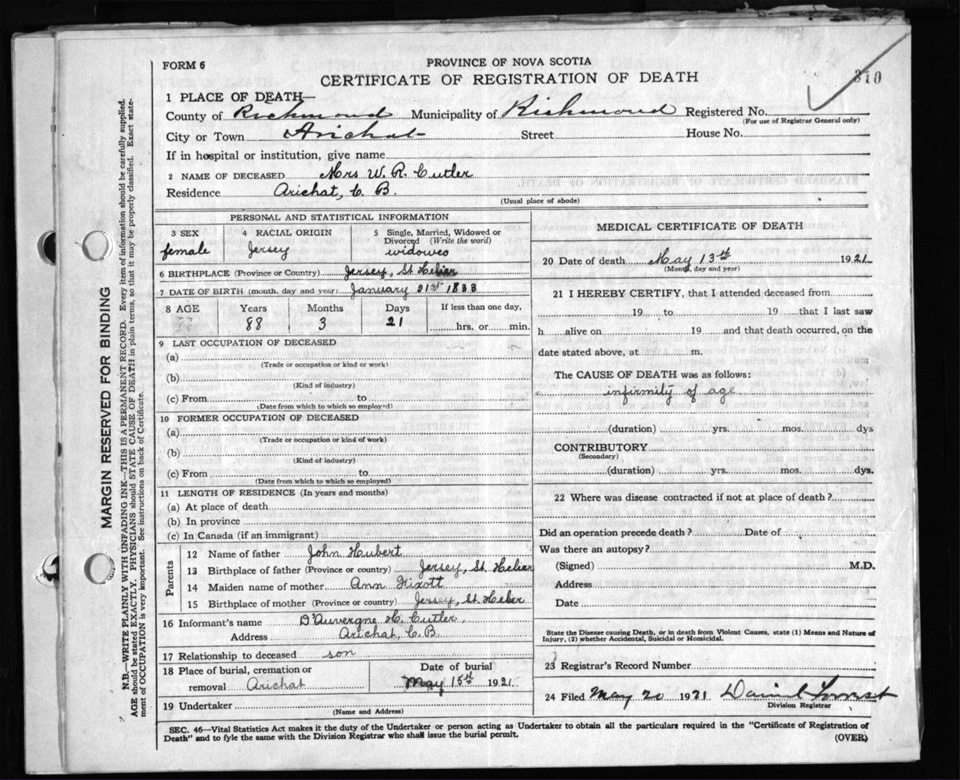 FORM 6
PROVINCE OF NOVA SCOTIA
CERTIFICATE OF REGISTRATION OF DEATH
310
1 PLACE OF DEATH—
County of Richmond Municipality of Richmond Registered No.
(For use of Registrar General only)
City or Town Arichat Street House No.
If in hospital or institution, give name
2 NAME OF DECEASED Mrs W. R. Cutler
Residence Arichat, C. B.
(Usual place of abode)
PERSONAL AND STATISTICAL INFORMATION
3 SEX
female
4 RACIAL ORIGIN
Jersey
5 Single, Married, Widowed or Divorced (Write the word)
widowed
6 BIRTHPLACE (Province or Country) Jersey, St. Helier
7 DATE OF BIRTH (month, day and year) January 21st 1833
8 AGE
Years
88
Months
3
Days
21
If less than one day,
hrs. or min.
9 LAST OCCUPATION OF DECEASED
(a)
(Trade or occupation or kind or work)
(b)
(Kind of industry)
(c) From to
(Date from which to which so employed)
10 FORMER OCCUPATION OF DECEASED
(a)
(Trade or occupation or kind of work)
(b)
(Kind of industry)
(c) From to
(Date from which to which so employed)
11 LENGTH OF RESIDENCE (In years and months)
(a) At place of death
(b) In province
(c) In Canada (if an immigrant)
Parents
12 Name of father John Hubert
13 Birthplace of father (Province or country) Jersey, St. Helier
14 Maiden name of mother Ann
15 Birthplace of mother (Province or country) Jersey, St. Helier
16 Informant's name D'Auvergne H. Cutler,
Address Arichat, C. B.
17 Relationship to deceased son
18 Place of burial, cremation or removal Arichat
Date of burial
May 15th 1921
19 Undertaker
(Name and Address)
MEDICAL CERTIFICATE OF DEATH
20 Date of death May 13th 1921
(Month, day and year)
21 I HEREBY CERTIFY, that I attended deceased from
19 to 19 that I last saw
h alive on 19 and that death occurred, on the
date stated above, at m.
The CAUSE OF DEATH was as follows:
infirmity of age
(duration) yrs. mos. dys
CONTRIBUTORY
(Secondary)
(duration) yrs. mos. dys.
22 Where was disease contracted if not at place of death?
Did an operation precede death? Date of
Was there an autopsy?
(Signed) M.D.
Address
Date
State the Disease causing Death, or in death from Violent Causes, state (1) Means and Nature of
Injury, (2) whether Accidental, Suicidal or Homicidal.
23 Registrar's Record Number
24 Filed May 20 1921
Division Registrar
SEC. 46—Vital Statistics Act makes it the duty of the Undertaker or person acting as Undertaker to obtain all the particulars required in the "Certificate of Registration of
Death" and to fyle the same with the Division Registrar who shall issue the burial permit.
(OVER)
MARGIN RESERVED FOR BINDING
N.B.—WRITE PLAINLY WITH UNFADING INK—THIS IS A PERMANENT RECORD. Every item of information should be carefully supplied.
AGE should be stated EXACTLY. PHYSICIANS should STATE CAUSE OF DEATH in plain terms, so that it may be properly classified. Exact state-
ment of OCCUPATION is very important. See instructions on back of Certificate.